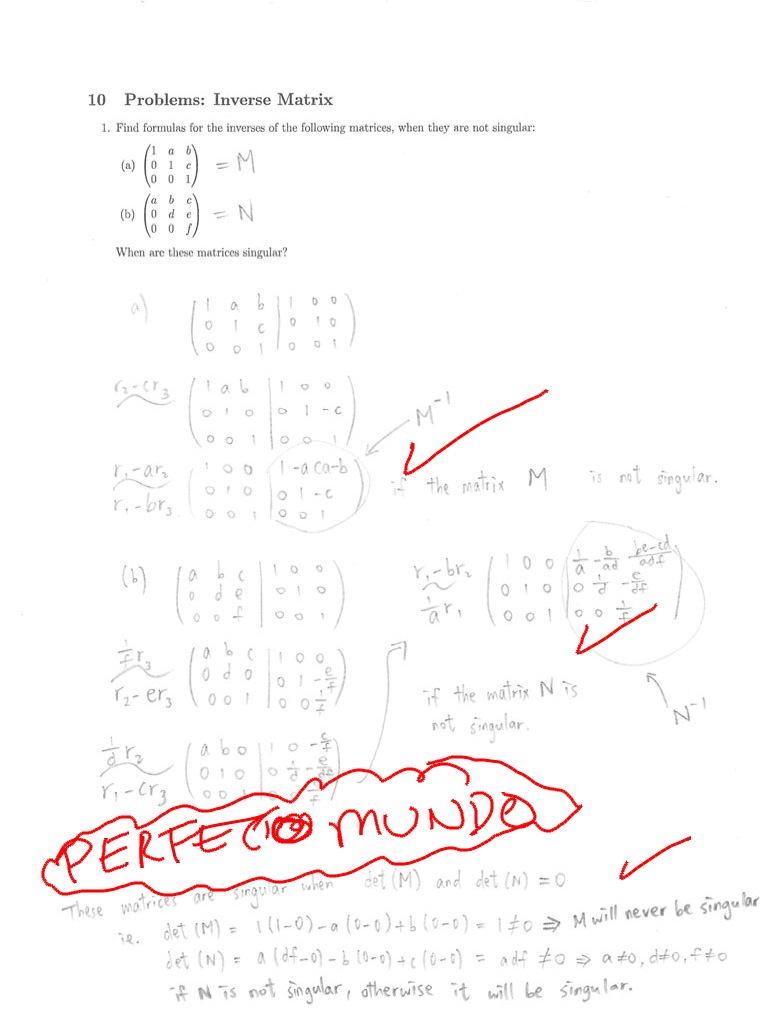 10 Problems: Inverse Matrix
1. Find formulas for the inverses of the following matrices, when they are not singular:
(a) (1 a b
0 1 c
0 0 1) = M
(b) (a b c
0 d e
0 0 f) = N
When are these matrices singular?
a) (1 a b | 1 0 0
0 1 c | 0 1 0
0 0 1 | 0 0 1)
r2-cr3 (1 a b | 1 0 0
0 1 0 | 0 1 -c
0 0 1 | 0 0 1)
M^-1
r1-ar2 (1 0 0 | 1 -a ca-b
0 1 0 | 0 1 -c
r1-br3 0 0 1 | 0 0 1)
if the matrix M is not singular.
(b) (a b c | 1 0 0
0 d e | 0 1 0
0 0 f | 0 0 1)
1/f r3 (a b c | 1 0 0
0 d 0 | 0 1 -e/f
r2-er3 0 0 1 | 0 0 1/f)
1/d r2 (a b 0 | 1 0 -c/f
0 1 0 | 0 1/d -e/df
r1-cr3 0 0 1 | 0 0 1/f)
r1-br2 (1 0 0 | 1/a -b/ad be-cd/adf
0 1 0 | 0 1/d -e/df
1/a r1 0 0 1 | 0 0 1/f)
if the matrix N is
not singular.
N^-1
PERFECTO MUNDO
These matrices are singular when det(M) and det(N) = 0
ie. det(M) = 1(1-0)-a(0-0)+b(0-0) = 1≠0 ⇒ M will never be singular
det(N) = a(df-0)-b(0-0)+c(0-0) = adf ≠0 ⇒ a≠0, d≠0, f≠0
if N is not singular, otherwise it will be singular.